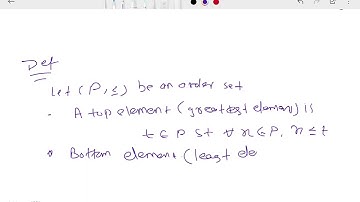 Def
Let (P, ≤) be an order set
. A top element (greatest element) is
t ∈ P st ∀ x ∈ P, x ≤ t
* Bottom element (least ele